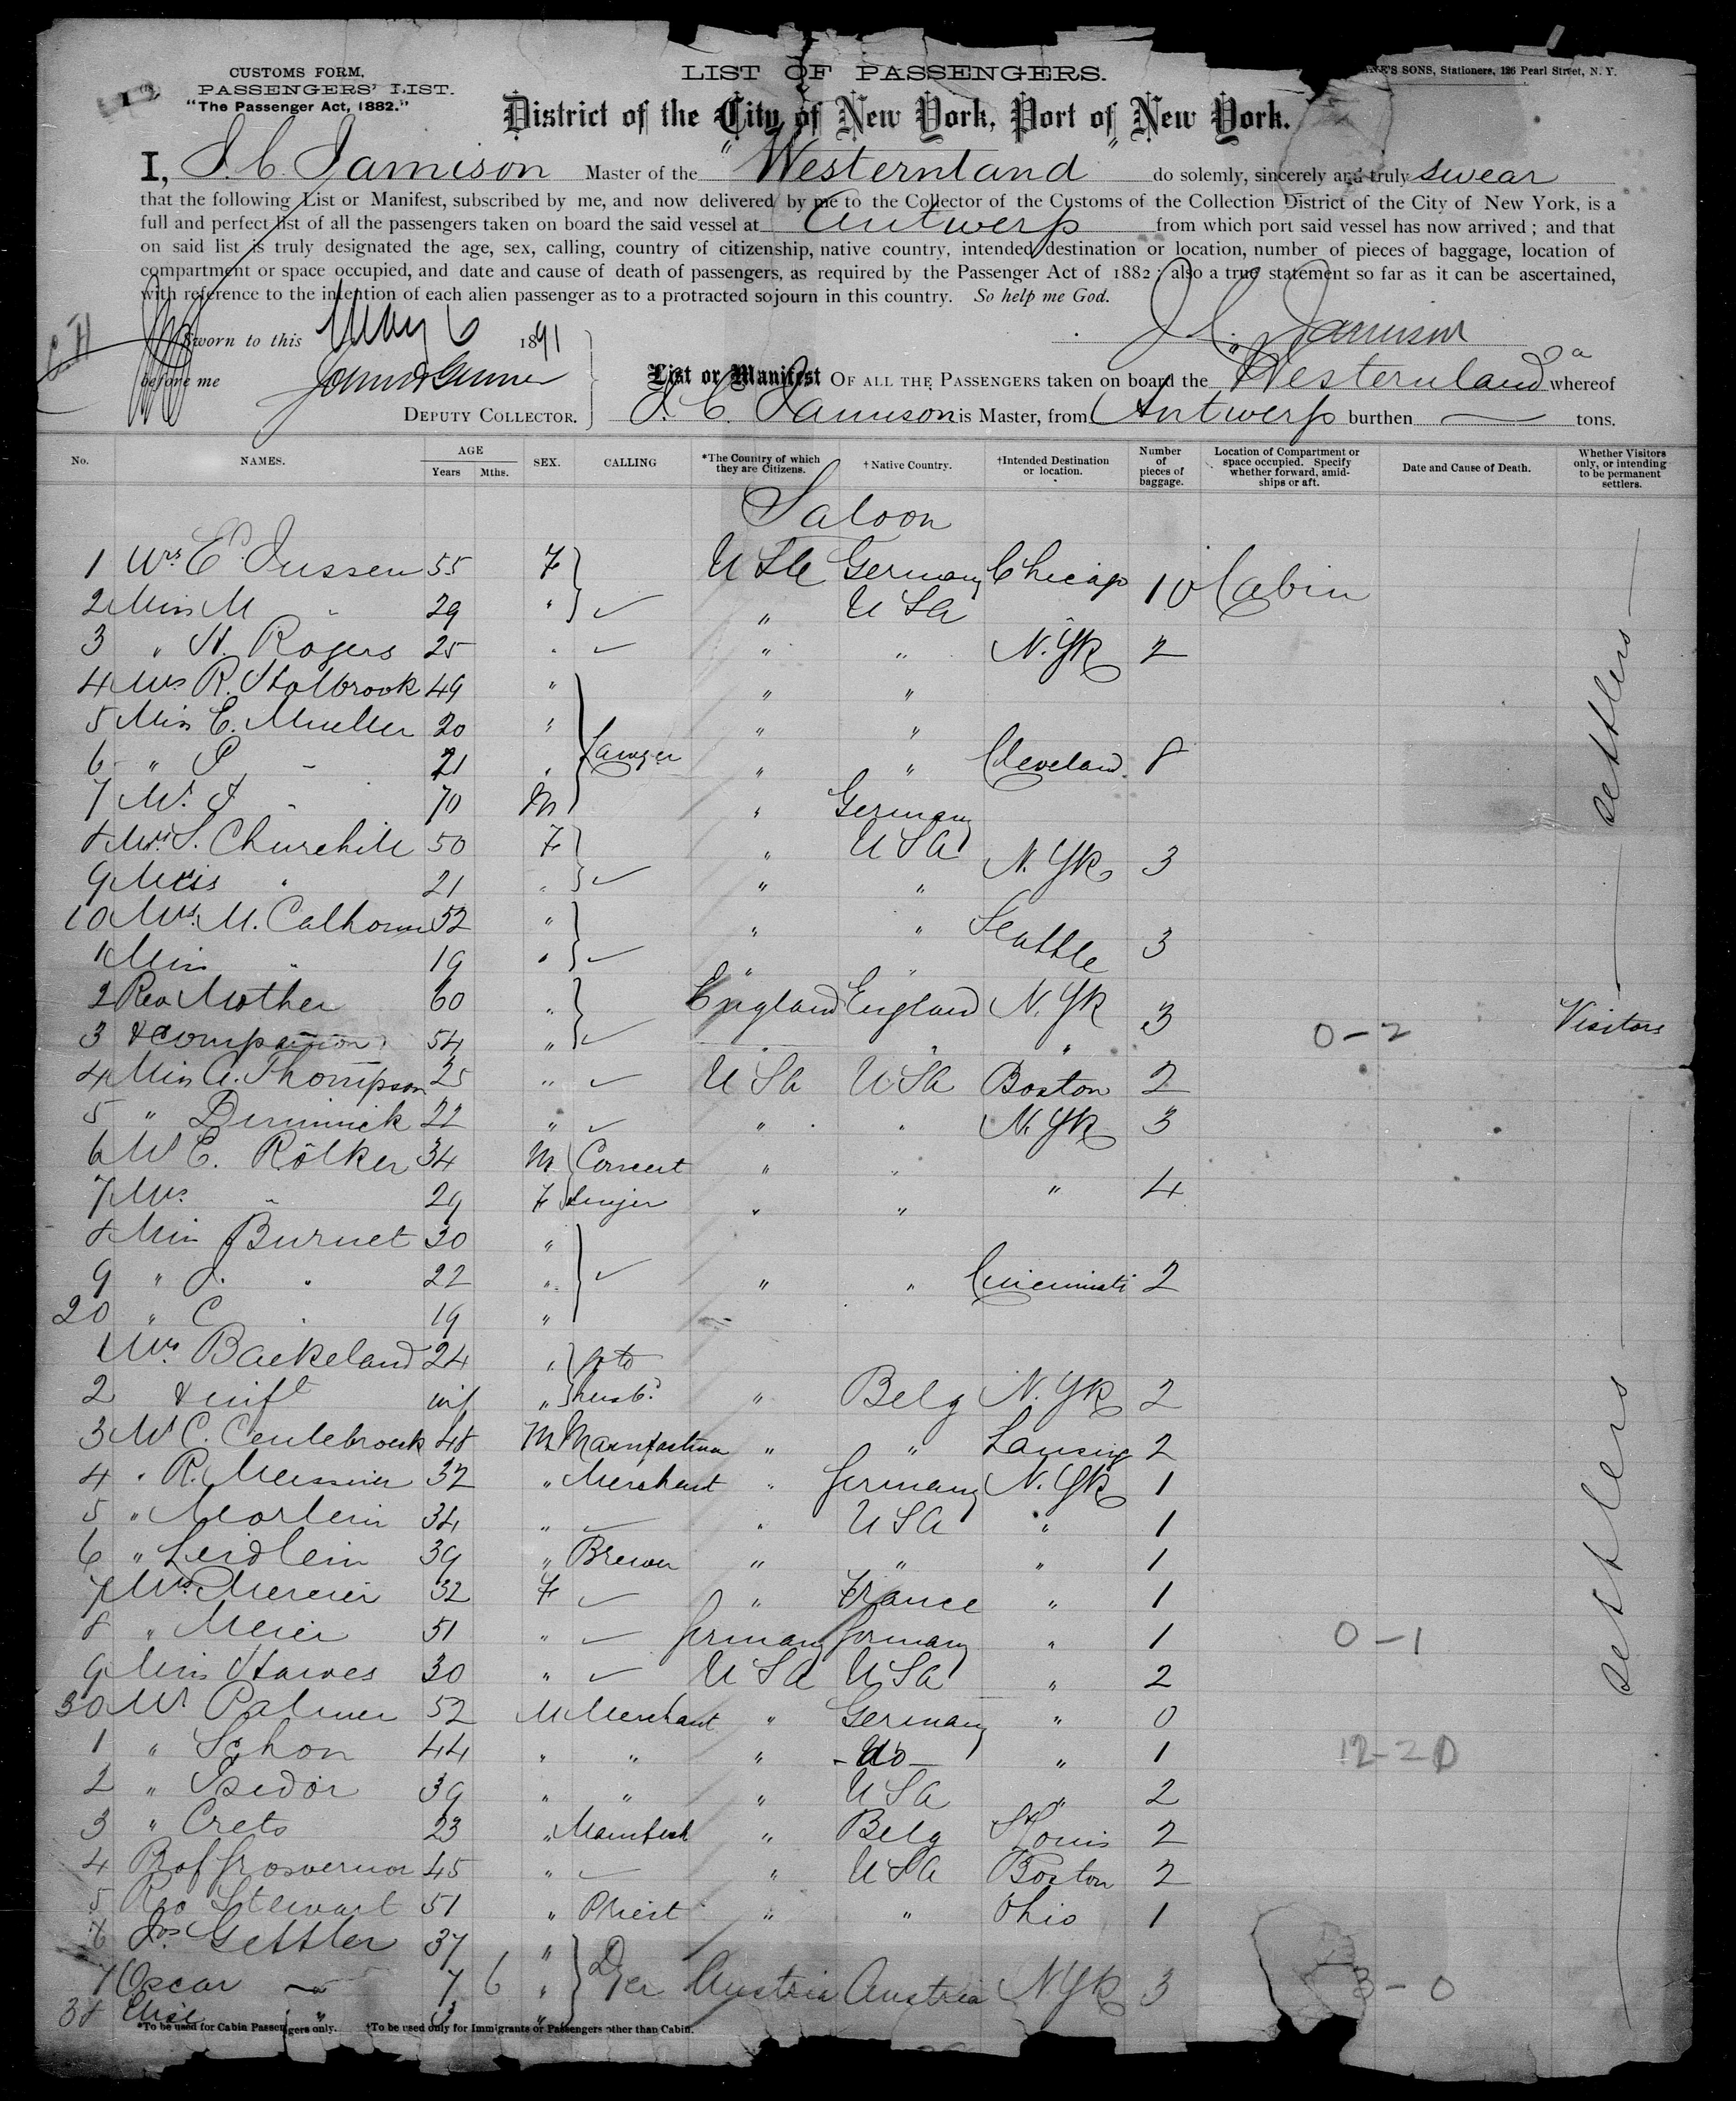 CUSTOMS FORM,
PASSENGERS' LIST.
"The Passenger Act, 1882."
LIST OF PASSENGERS.
SONS, Stationers, 126 Pearl Street, N. Y.
District of the City of New York, Port of New York.
I, J. C. Jamison Master of the "Westernland" do solemnly, sincerely and truly swear
that the following List or Manifest, subscribed by me, and now delivered by me to the Collector of the Customs of the Collection District of the City of New York, is a
full and perfect list of all the passengers taken on board the said vessel at Antwerp from which port said vessel has now arrived ; and that
on said list is truly designated the age, sex, calling, country of citizenship, native country, intended destination or location, number of pieces of baggage, location of
compartment or space occupied, and date and cause of death of passengers, as required by the Passenger Act of 1882 ; also a true statement so far as it can be ascertained,
with reference to the intention of each alien passenger as to a protracted sojourn in this country. So help me God.
Sworn to this May 6 1891
J. C. Jamison
before me
DEPUTY COLLECTOR.
List or Manifest OF ALL THE PASSENGERS taken on board the "Westernland" whereof
J. C. Jamison is Master, from Antwerp burthen — tons.
No. NAMES. AGE Years Mths. SEX. CALLING *The Country of which they are Citizens. †Native Country. †Intended Destination or location. Number of pieces of baggage. Location of Compartment or space occupied. Specify whether forward, amidships or aft. Date and Cause of Death. Whether Visitors only, or intending to be permanent settlers.
Saloon
1 Mrs E. Jussen 55 F USA Germany Chicago 10 Cabin
2 Miss M " 29 " ✓ " USA "
3 " H. Rogers 25 " ✓ " " N. Yk 2
4 Mrs R. Holbrook 49 " " "
5 Miss E. Mueller 20 " " "
6 " P " 21 " Lawyer " " Cleveland 8
7 Mr. J " 70 M " Germany
8 Mrs. S. Churchill 50 F " USA N. Yk 3
9 Miss " 21 " ✓ " "
10 Mrs. M. Calhoun 52 " " " Seattle 3
1 Miss " 19 " ✓ " "
2 Rev Mother 60 " England England N. Yk 3 Visitors
3 & companion 54 " ✓ " " " 0-2
4 Miss A. Thompson 25 " ✓ USA USA Boston 2
5 " Dimmick 22 " ✓ " " N. Yk 3
6 Mr E. Rölker 34 M Concert " "
7 Mrs. " 29 F Singer " " " 4
8 Miss Burnet 30 "
9 " J. " 22 " ✓ " " Cincinnati 2
20 " C " 19 "
1 Mrs. Baekeland 24 " to
2 & inft inf " husbd. " Belg N. Yk 2
3 Mr C. Ceulebroeck 48 M " " Lansing 2
4 " R. Messner 32 " Merchant " Germany N. Yk 1
5 " Moerlein 34 " ✓ " USA " 1
6 " Leidlein 39 " Brewer " " " 1
7 Mrs Mercier 32 F ✓ " France " 1
8 " Meier 51 " ✓ Germany Germany " 1 0-1
9 Miss Hawes 30 " ✓ USA USA " 2
30 Mr Palmer 52 M Merchant " Germany " 0
1 " Schon 44 " " " -do- " 1 12-20
2 " Isidor 39 " " " USA " 2
3 " Crets 23 " " Belg St Louis 2
4 Prof Grosvenor 45 " ✓ " USA Boston 2
5 Rev Stewart 51 " Priest " " Ohio 1
6 Jos Gettler 37 "
7 Oscar " 7 6 " Dyer Austria Austria N Yk 3 3-0
38 Elise " "
settlers
settlers
*To be used for Cabin Passengers only. †To be used only for Immigrants or Passengers other than Cabin.